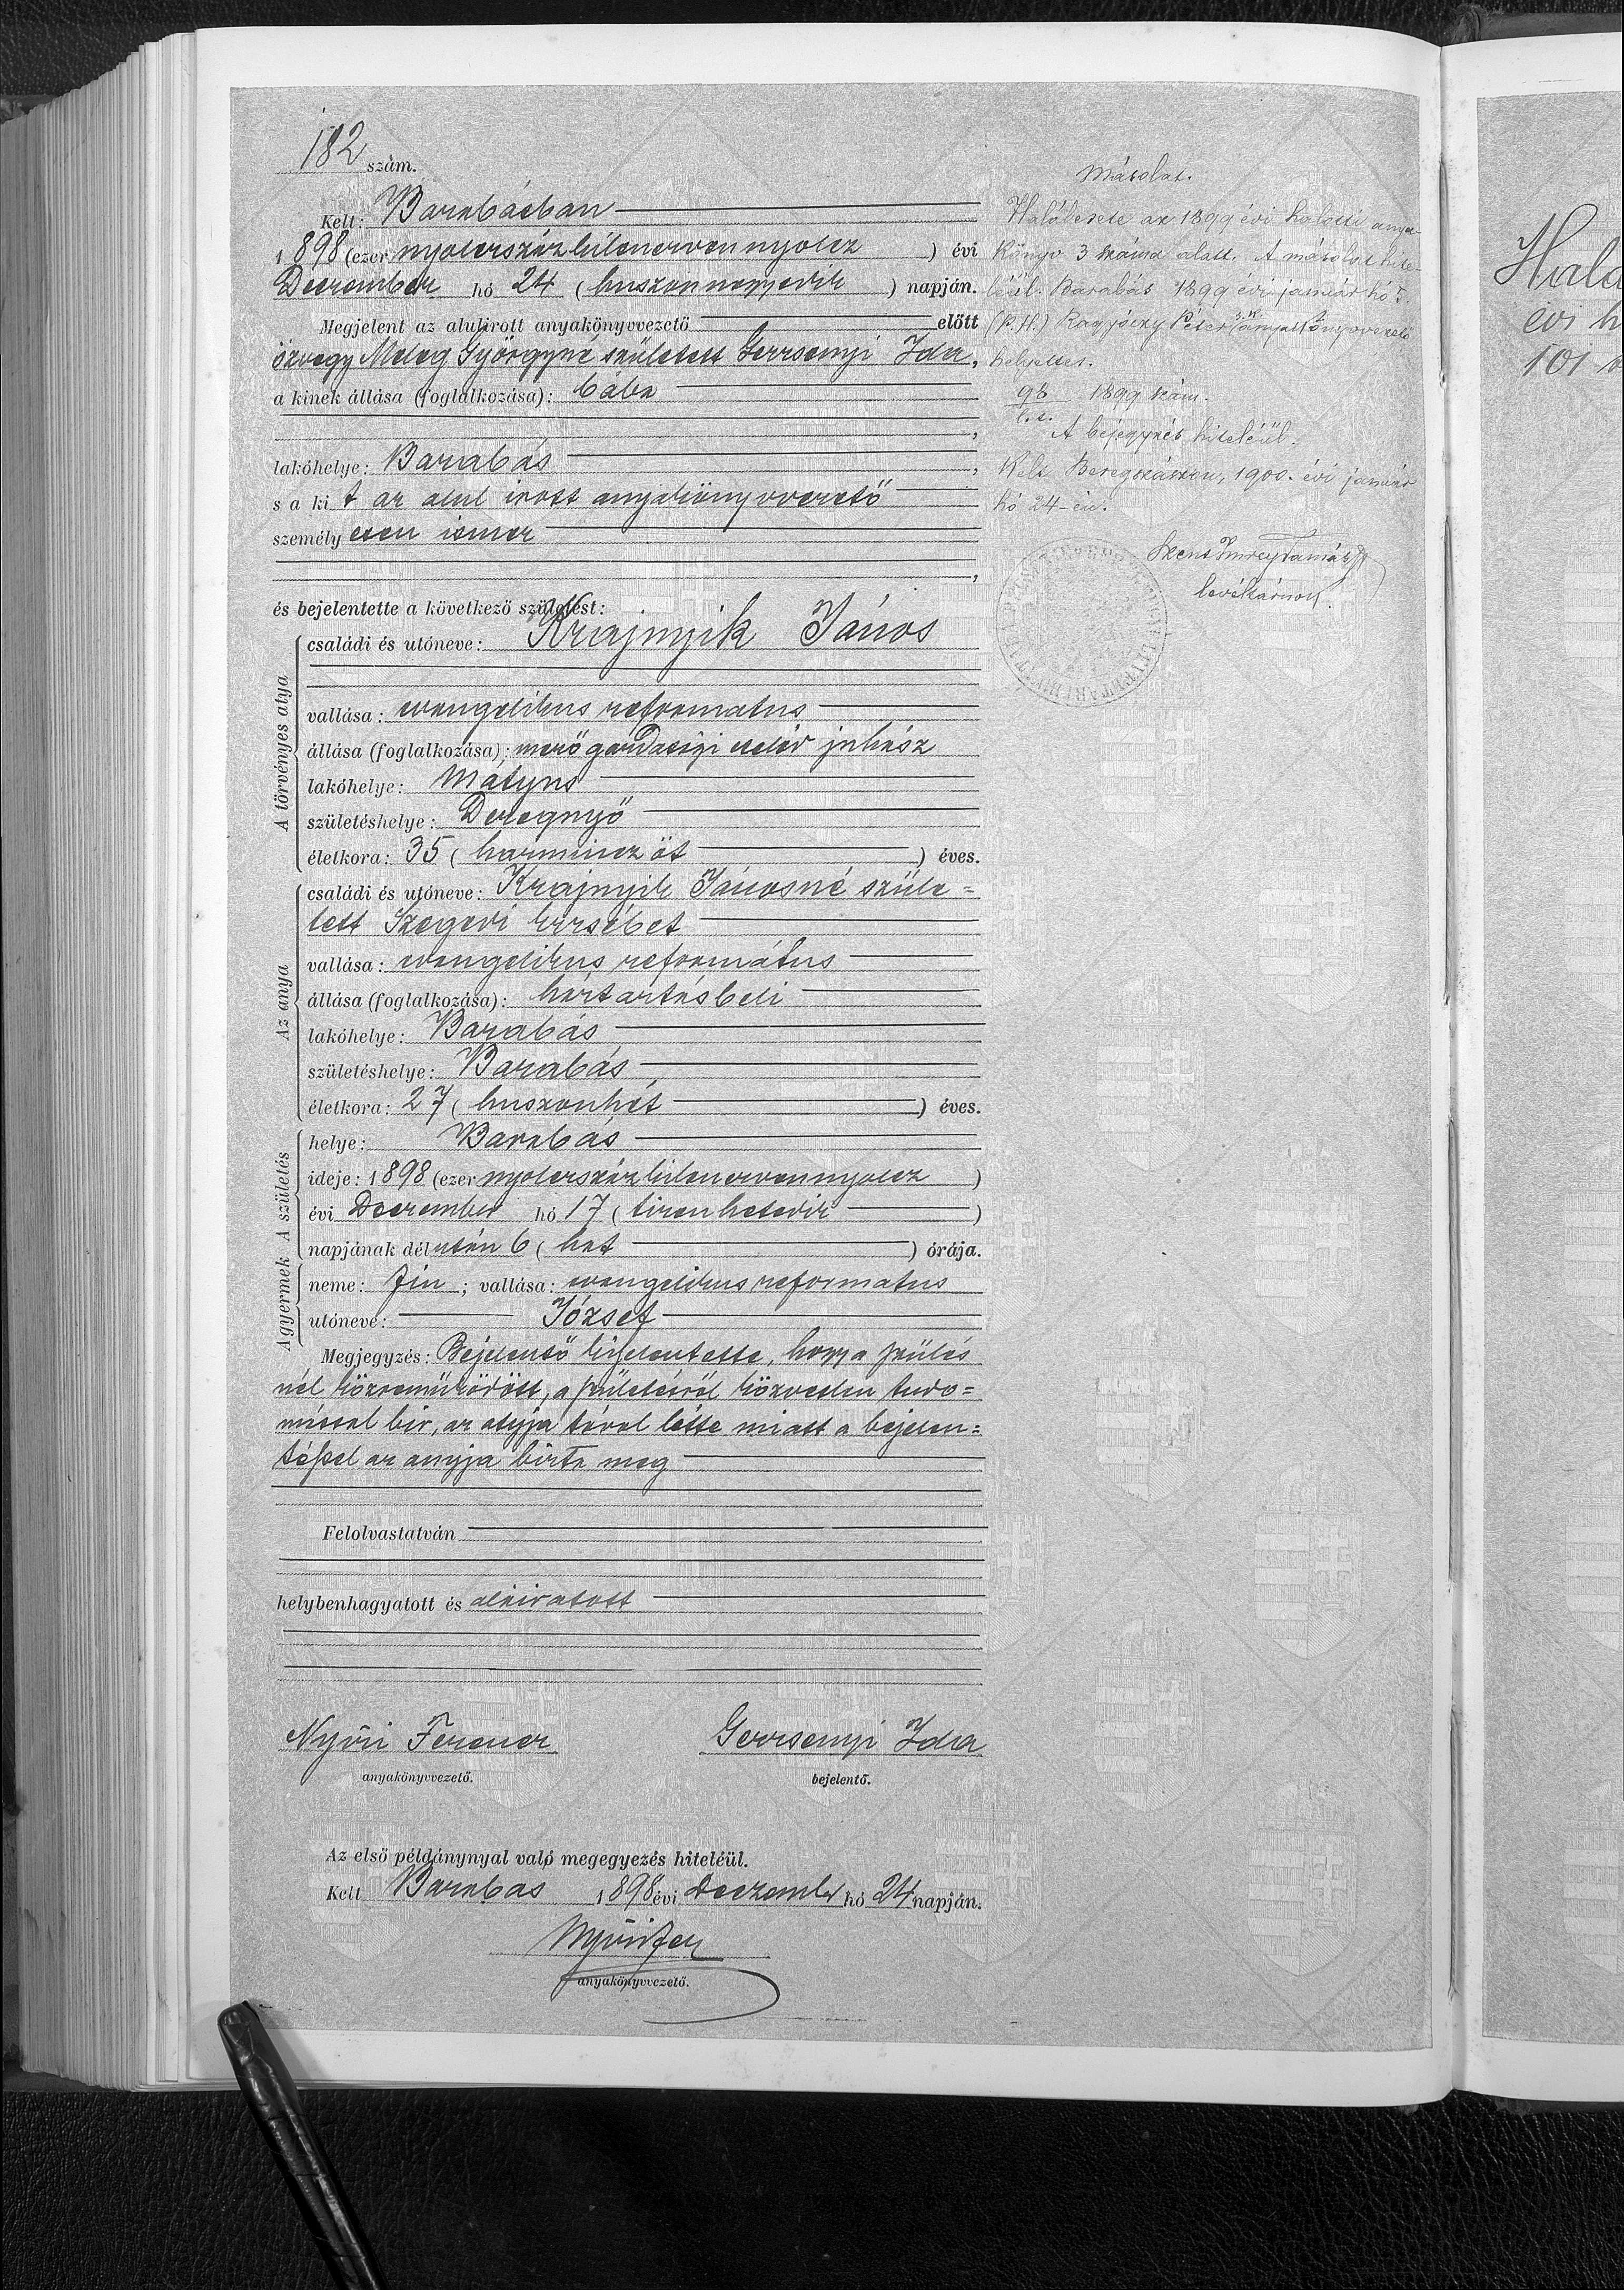 182 szám.
Kelt: Barabásban
1898 (ezer nyolczszázkilenczven nyolcz) évi
December hó 24 (huszonnegyedik) napján.
Megjelent az alulirott anyakönyvvezető előtt
özvegy Meleg Györgyné született Gerzsenyi Ida,
a kinek állása (foglalkozása): bába
lakóhelye: Barabás,
s a ki t az alul irott anyakönyvvezető
személy esen ismer
és bejelentette a következő születést:
A törvényes atya
családi és utóneve: Krajnyik János
vallása: evangelikus reformatus
állása (foglalkozása): mező gazdasági cseléd juhász
lakóhelye: Mátyus
születéshelye: Deregnyő
életkora: 35 (harmincz öt) éves.
Az anya
családi és utóneve: Krajnyik Jánosné szüle=
tett Szegedi Erzsébet
vallása: evangelikus református
állása (foglalkozása): háztartásbeli
lakóhelye: Barabás
születéshelye: Barabás
életkora: 27 (huszonhét) éves.
A születés
helye: Barabás
ideje: 1898 (ezer nyolczszázkilenczvennyolcz)
évi December hó 17 (tizenhetedik)
napjának délután 6 (hat) órája.
A gyermek
neme: fiu; vallása: evangelikus reformatus
utóneve: József
Megjegyzés: Bejelentő kijelentette, hogy a szülés
nél közreműködött, a születésről közvetlen tudo=
mással bir, az atyja távol léte miatt a bejelen=
téssel az anyja bizta meg
Felolvastatván
helybenhagyatott és aláiratott
Nyíri Ferencz Gerzsenyi Ida
anyakönyvvezető. bejelentő.
Az első példánynyal való megegyezés hiteléül.
Kelt Barabás 1898 évi Deczember hó 24 napján.
Nyíri Fer
anyakönyvvezető.
Másolat.
Halálesete az 1899 évi halotti anya-
könyv 3 száma alatt. A másolat hite-
léül. Barabás 1899 évi január hó 5.
(P. H.) Péter s.k. anyakönyvvezető
helyettes.
98 1899 szám.
l. t.
A bejegyzés hiteléül.
Kelt Beregszászon, 1900. évi január
hó 24-én.
Szent Imrey Tamás
levéltárnok.
Halá
évi h
101